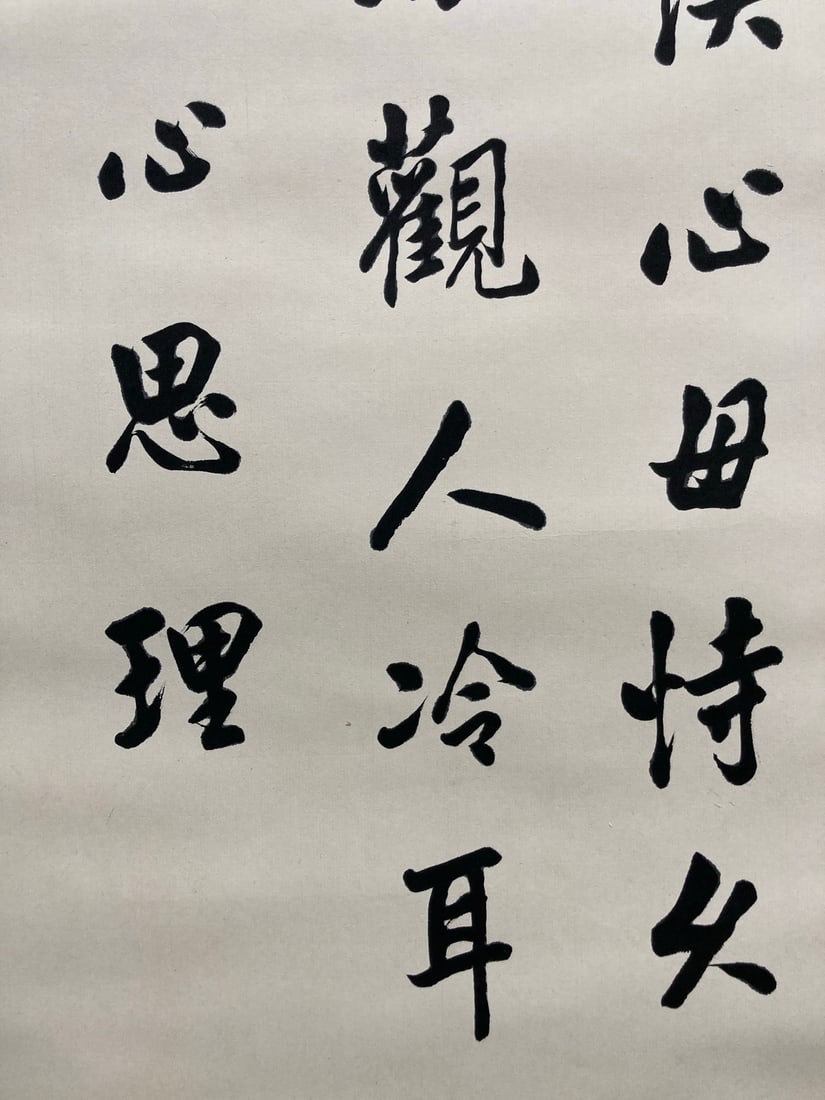 心毋恃久
觀人冷耳
心思理